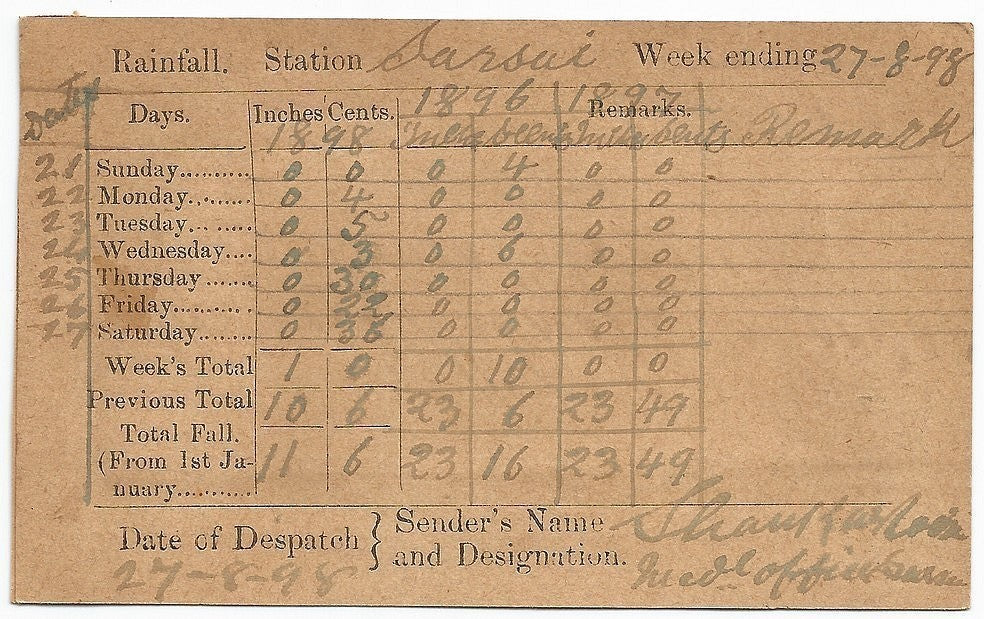 Rainfall. Station Sarsai Week ending 27-8-98
Dates Days. Inches Cents. 1896 1897 Remarks.
1898 Inches Cents Inches Cents Remark
21 Sunday.......... 0 0 0 4 0 0
22 Monday.......... 0 4 0 0 0 0
23 Tuesday... ...... 0 5 0 0 0 0
24 Wednesday.... 0 3 0 6 0 0
25 Thursday ...... 0 30 0 0 0 0
26 Friday........... 0 22 0 0 0 0
27 Saturday....... 0 36 0 0 0 0
Week's Total 1 0 0 10 0 0
Previous Total 10 6 23 6 23 49
Total Fall.
(From 1st Ja- 11 6 23 16 23 49
nuary...........
Date of Despatch } Sender's Name
and Designation. Medl officer
27-8-98